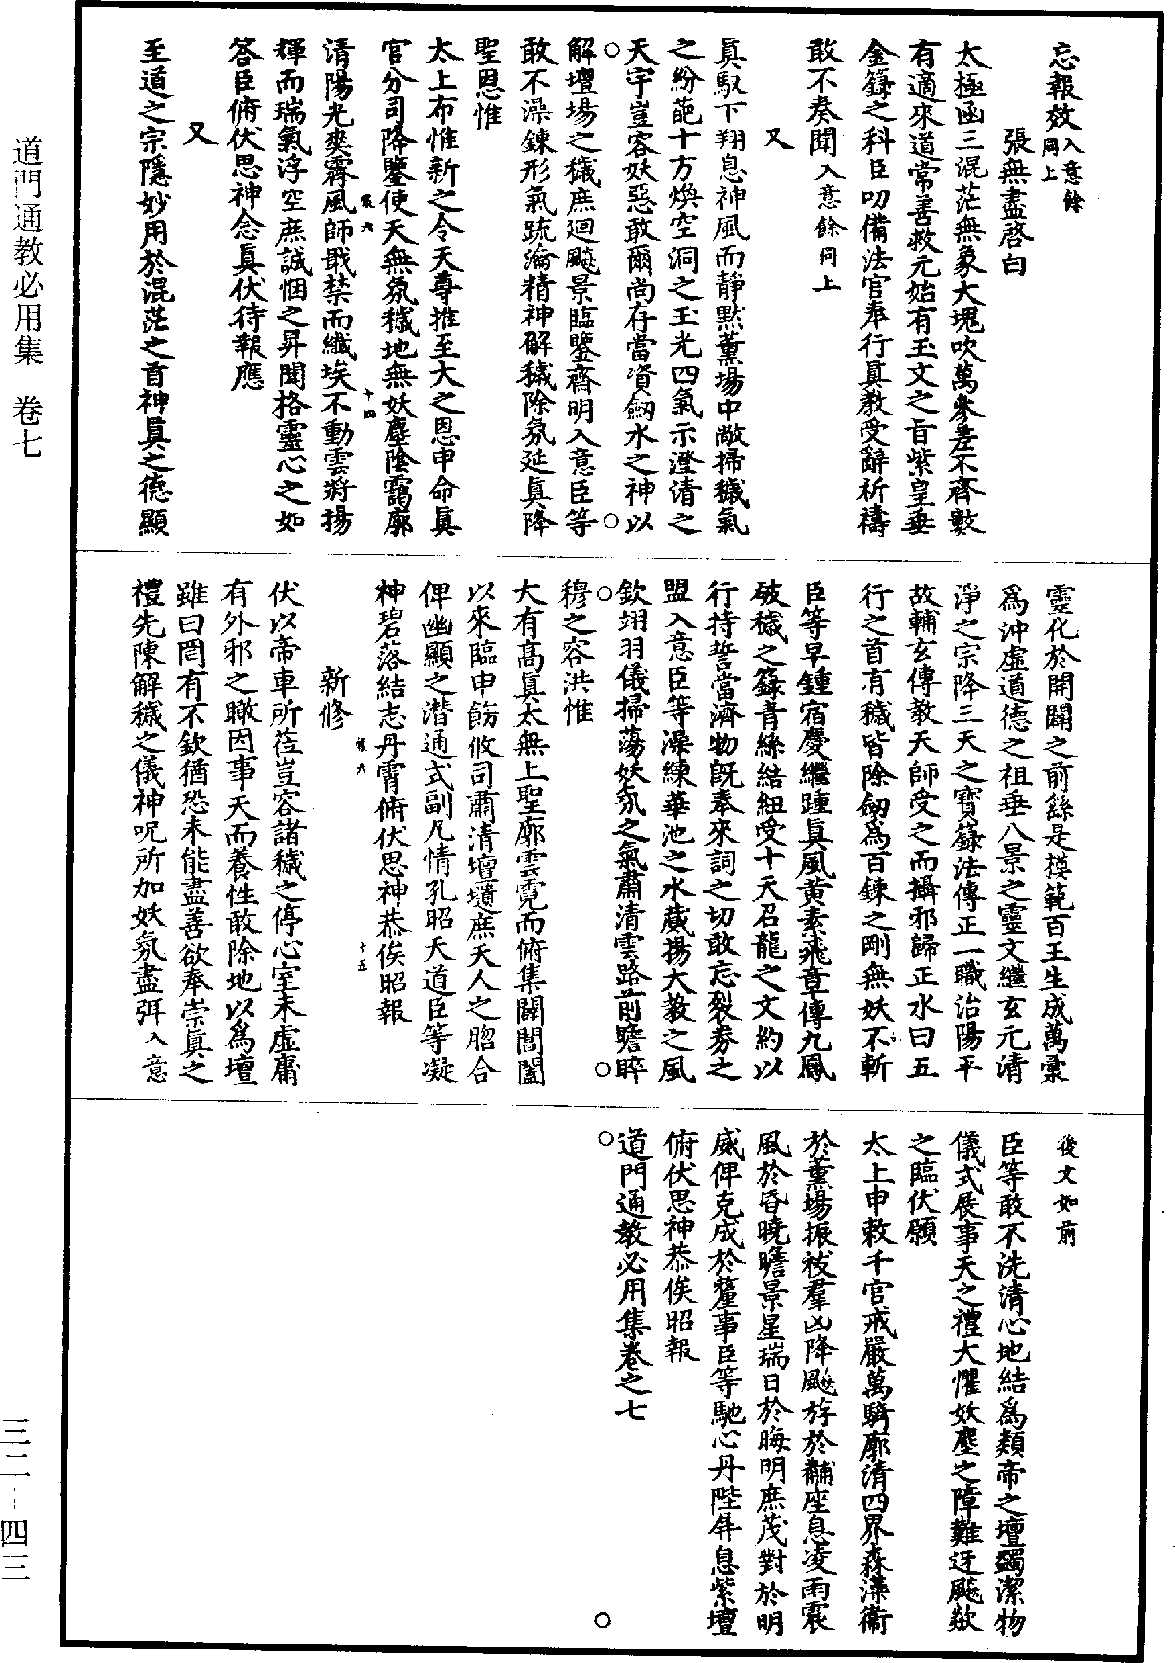 忘報效入意餘同上
張無盡啓白
太極函三混茫無象大塊吹萬參差不齊數
有適來道常善救元始有玉文之旨紫皇垂
金籙之科臣叨備法官奉行真教受辭祈禱
敢不奏聞入意餘同上
又
真馭下翔息神風而靜默薰場中敞掃穢氣
之紛葩十方煥空洞之玉光四氣示澄清之
天宇豈容妖惡敢爾尚存當資劒水之神以
解壇場之穢庶迴飈景臨鑒齋明入意臣等
敢不澡鍊形氣疏瀹精神解穢除氛延真降
聖恩惟
太上布惟新之令天尊推至大之恩申命真
官分司降鑒使天無氛穢地無妖塵陰靄廓
清陽光爽霽風師戢禁而纖埃不動雲將揚
輝而瑞氣浮空庶誠悃之昇聞格靈心之如
答臣俯伏思神念真伏待報應
又
至道之宗隱妙用於混茫之首神真之德顯
靈化於開闢之前繇是模範百王生成萬彙
爲沖虛道德之祖垂八景之靈文繼玄元清
淨之宗降三天之寶籙法傳正一職治陽平
故輔玄傳教天師受之而攝邪歸正水曰五
行之首有穢皆除劒爲百鍊之剛無妖不斬
臣等早鍾宿慶繼踵真風黃素飛章傳九鳳
破穢之籙青絲結紐受十天召龍之文約以
行持誓當濟物既奉來詞之切敢忘裂券之
盟入意臣等澡練華池之水葳揚大教之風
欽翊羽儀掃蕩妖氛之氣肅清雲路前瞻睟
穆之容洪惟
大有高真太無上聖廓雲霓而俯集闢閶闔
以來臨申飭攸司肅清壇壝庶天人之胳合
俾幽顯之潛通式副凡情孔昭天道臣等凝
神碧落結志丹霄俯伏思神恭俟昭報
新修
伏以帝車所莅豈容諸穢之停心室未虛庸
有外邪之瞰因事天而養性敢除地以爲壇
雖曰罔有不欽猶恐未能盡善欲奉崇真之
禮先陳解穢之儀神呪所加妖氛盡弭入意
後文如前
臣等敢不洗清心地結爲類帝之壇蠲潔物
儀式展事天之禮大懼妖塵之障難迓飈歘
之臨伏願
太上申敕千官戒嚴萬騎廓清四界森溝衞
於薰場振祓羣凶降飈斿於黼座息凌雨震
風於昏曉瞻景星瑞日於晦明庶茂對於明
威俾克成於釐事臣等馳心丹陛屏息紫壇
俯伏思神恭俟昭報
道門通教必用集卷之七
道門通教必用集 卷七
三二—四三